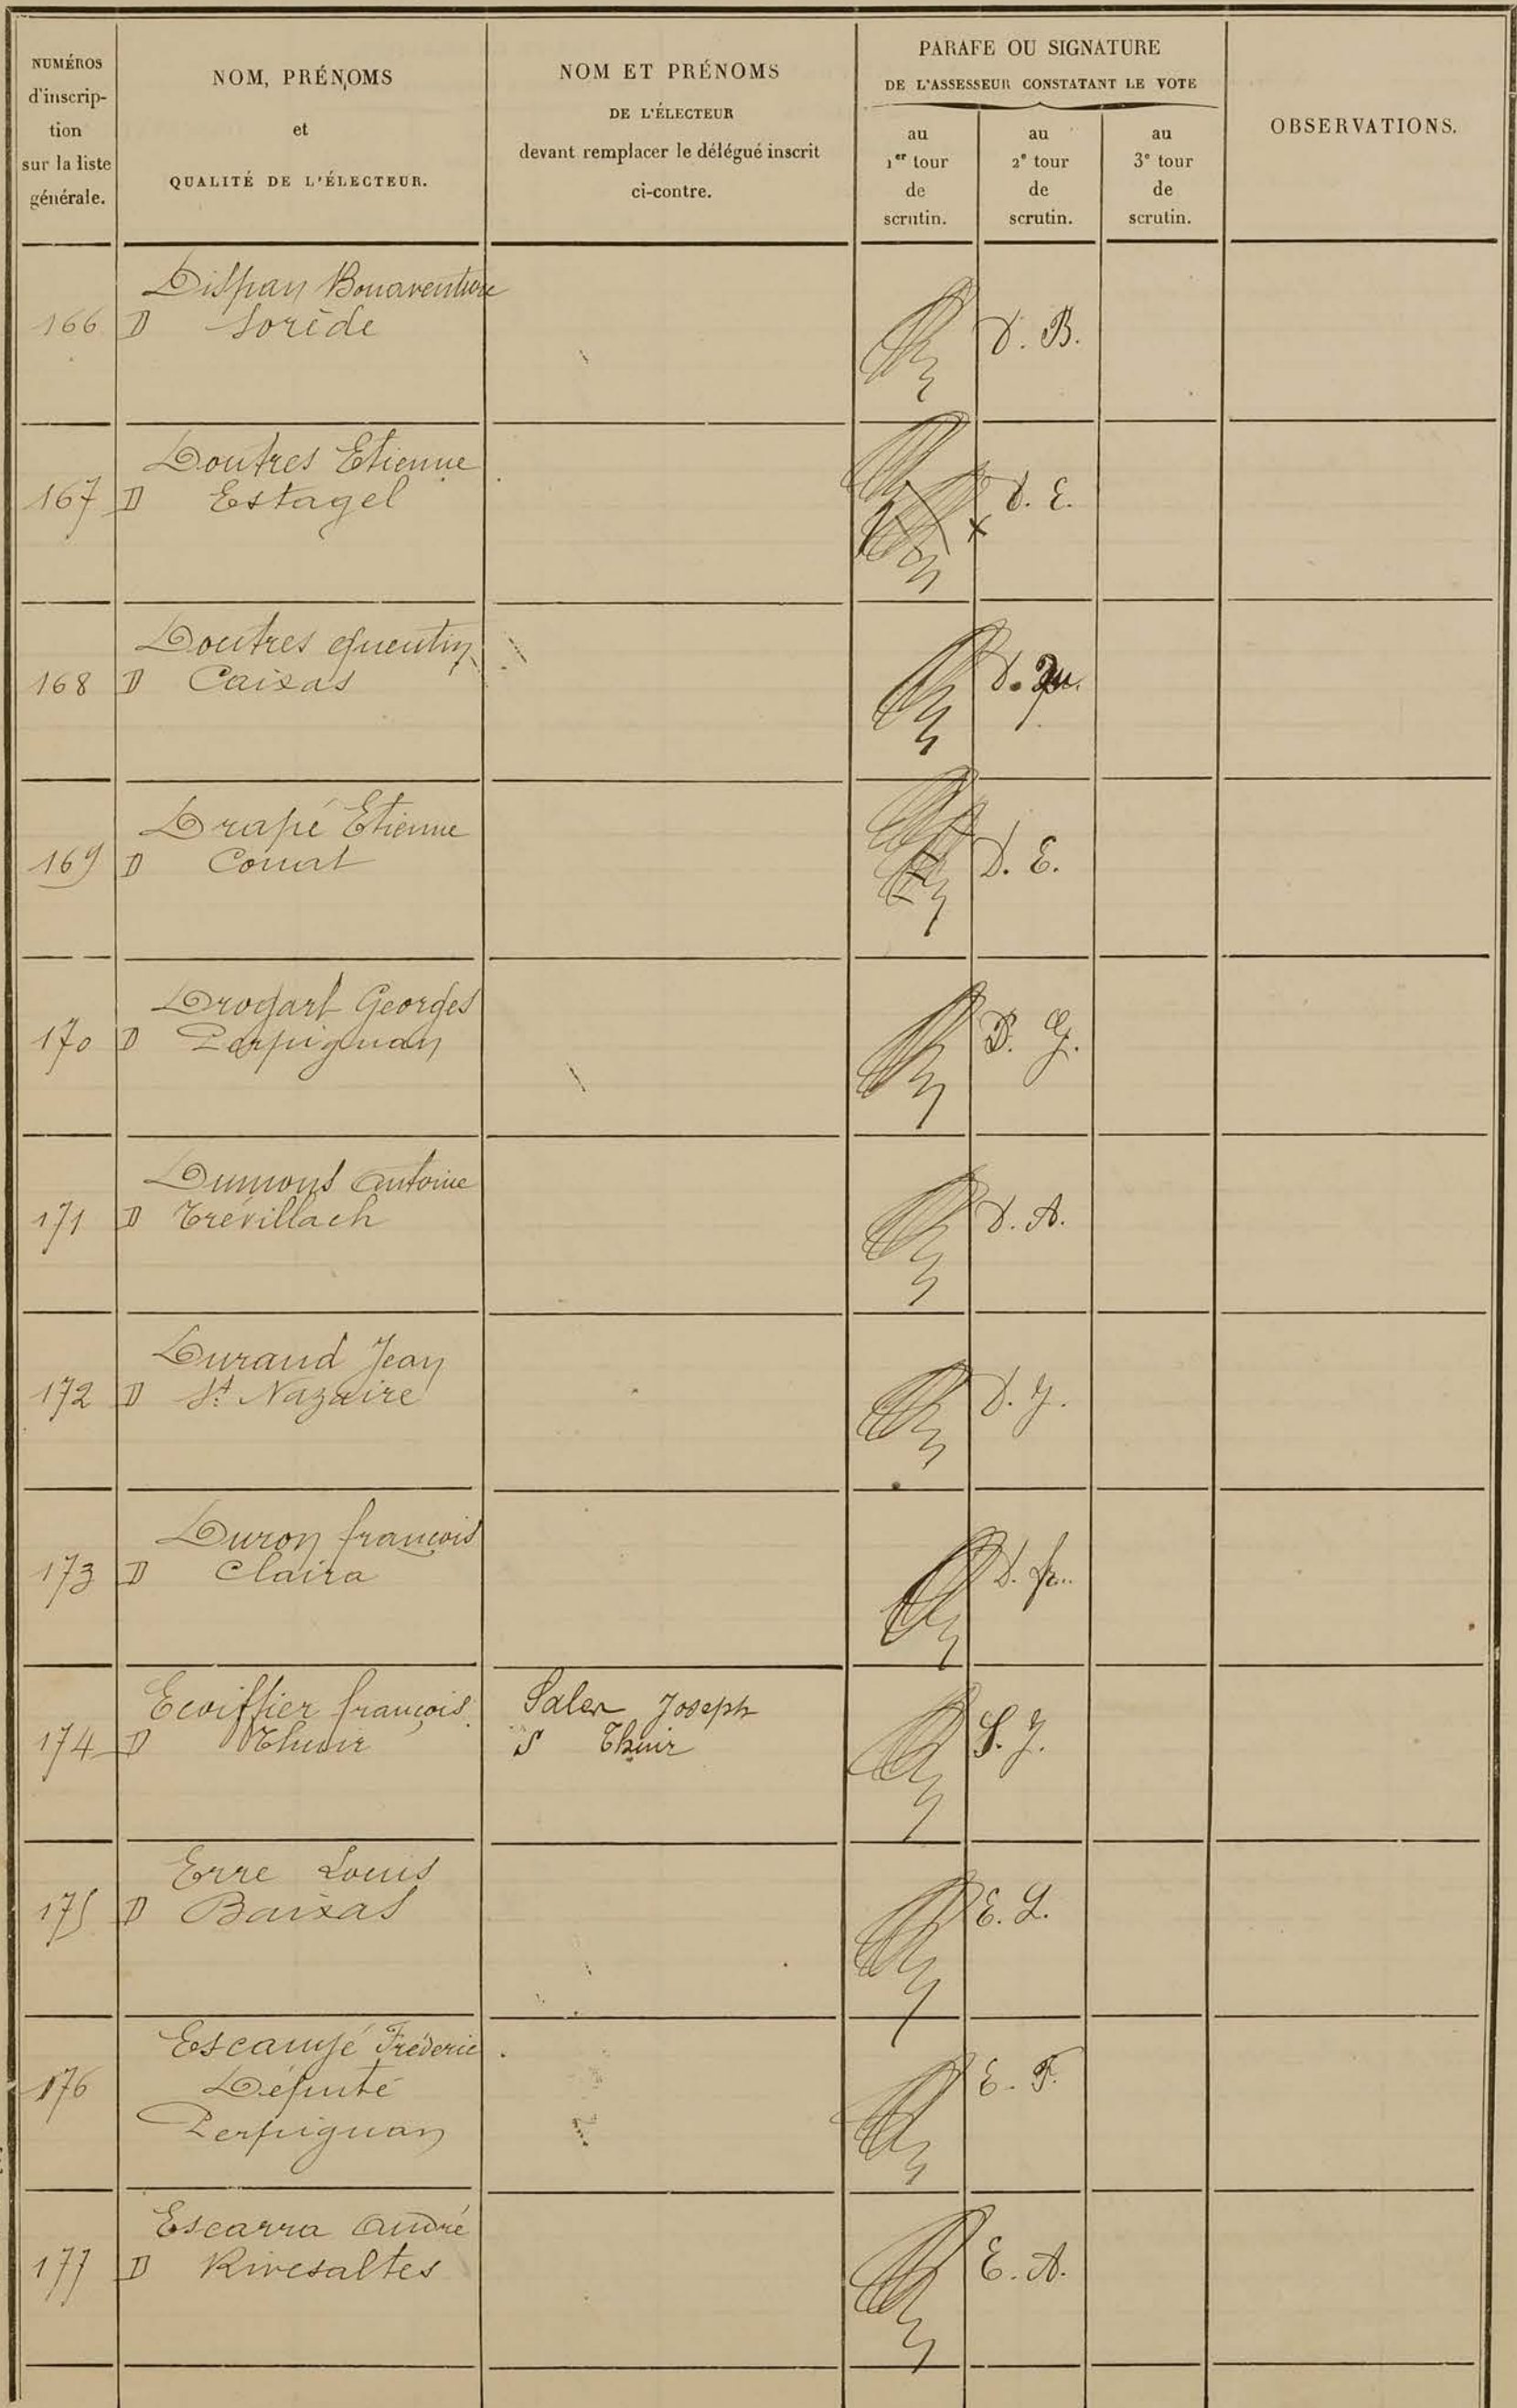 NUMÉROS
d'inscrip-
tion
sur la liste
générale.
NOM, PRÉNOMS
et
QUALITÉ DE L'ÉLECTEUR.
NOM ET PRÉNOMS
DE L'ÉLECTEUR
devant remplacer le délégué inscrit
ci-contre.
PARAFE OU SIGNATURE
DE L'ASSESSEUR CONSTATANT LE VOTE
au
1er tour
de
scrutin.
au
2e tour
de
scrutin.
au
3e tour
de
scrutin.
OBSERVATIONS.
Dispan Bonaventure
166 D Sorède D. B.
Doutres Etienne
167 D Estagel D. E.
Doutres Quentin
168 D Caixas D. Qu.
Drapé Etienne
169 D Conat D. E.
Drogart Georges
170 D Perpignan D. G.
Dumons Antoine
171 D Trévillach D. A.
Durand Jean
172 D St Nazaire D. J.
Duron françois
173 D Claira D. fr.
Ecoiffier françois Joseph
174 D Thuir S Thuir S. J.
Erre Louis
175 D Baixas E. L.
Escanyé Fréderic
176 Député E. F.
Perpignan
Escarra André
177 D Rivesaltes E. A.